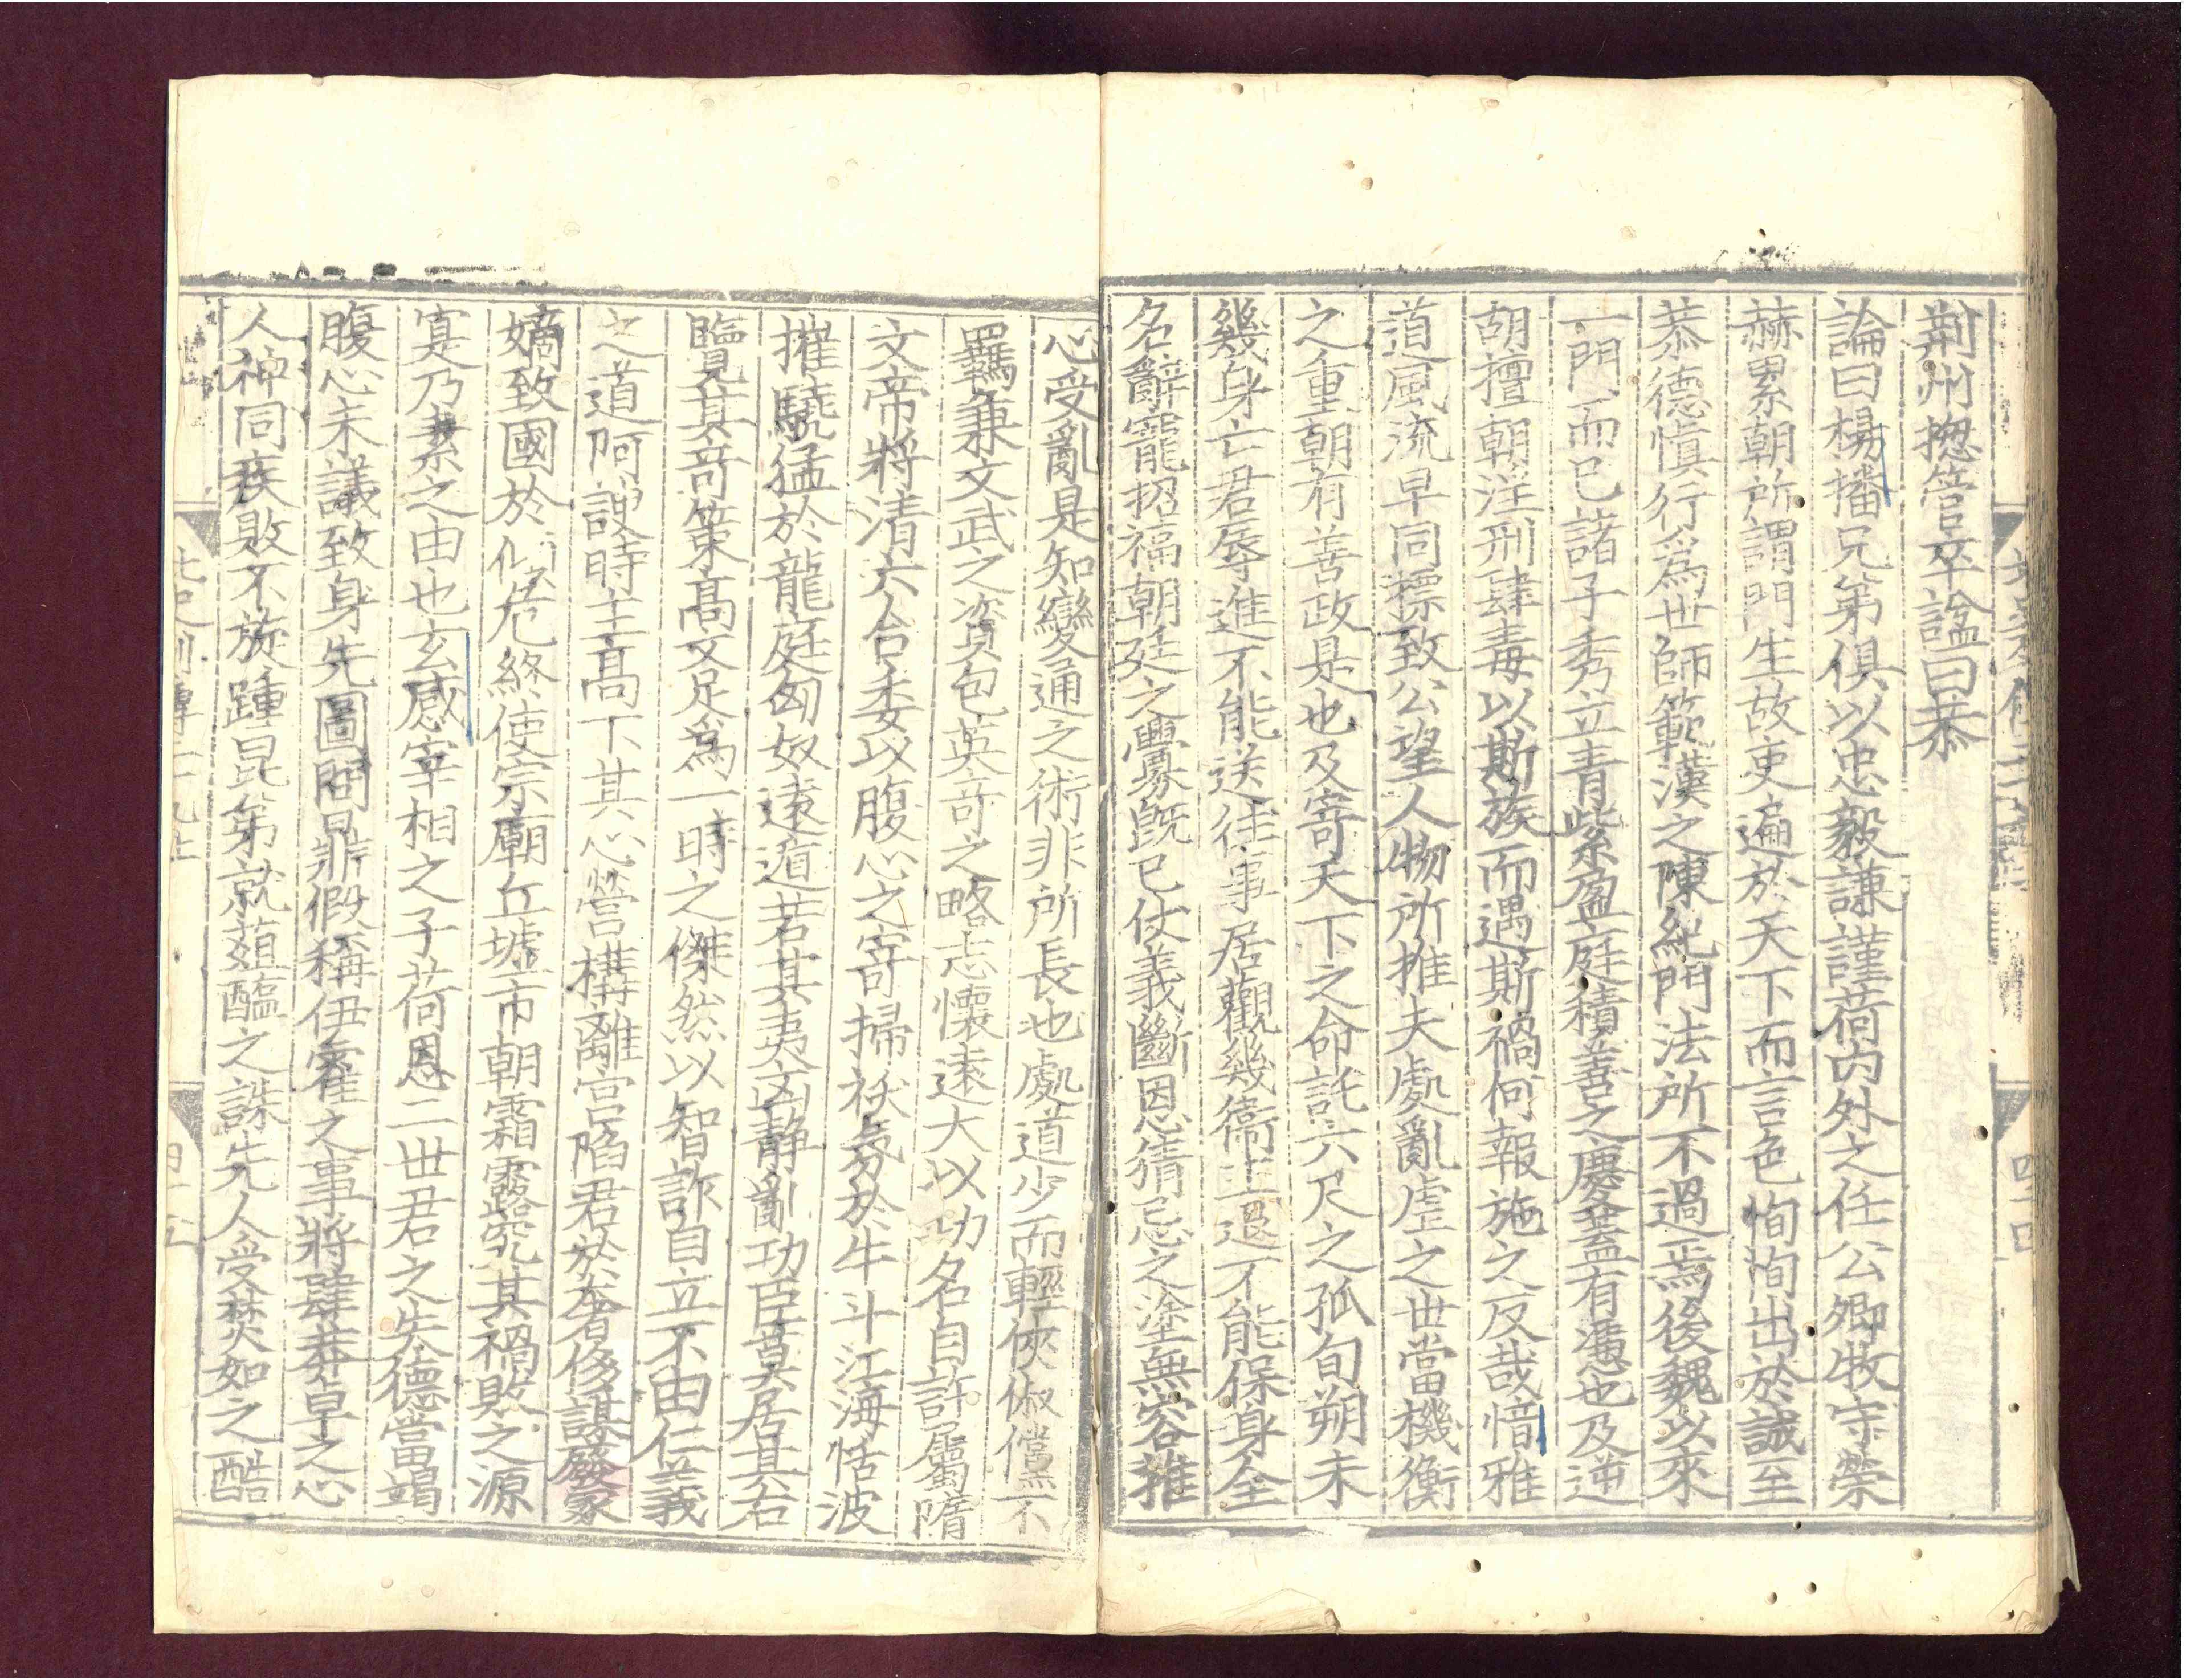 荆州揔管卒諡曰恭
論曰楊播兄弟俱以忠毅謙謹荷内外之任公卿牧守榮
赫累朝所謂門生故吏遍於天下而言色恂恂出於誠至
恭德愼行爲世師範漢之陳紀門法所不過焉後魏以來
一門而已諸子秀立青紫盈庭積善之慶蓋有憑也及逆
胡擅朝淫刑肆毒以斯族而遇斯禍何報施之反哉愔雅
道風流早同標致公望人物所推夫處亂虐之世當機衡
之重朝有善政是也及寄天下之命託六尺之孤旬朔未
幾身亡君辱進不能送往事居觀幾衛主退不能保身全
名辭寵招福朝廷之釁旣已仗義斷恩猜忌之塗無容推
心受亂是知變通之術非所長也處道少而輕俠俶儻不
羈兼文武之資包英奇之略志懷遠大以功名自許屬隋
文帝將清六合委以腹心之寄掃祅氛於牛斗江海恬波
摧驍猛於龍庭匈奴遠遁若其夷凶靜亂功臣莫居其右
覽其奇策高文足爲一時之傑然以智詐自立不由仁義
之道阿諛時主高下其心營構離宫陷君於奢侈謀廢冢
嫡致國於傾危終使宗廟丘墟市朝霜露究其禍敗之源
寔乃素之由也玄感宰相之子荷恩二世君之失德當竭
腹心未議致身先圖問鼎假稱伊霍之事將肆莽卓之心
人神同疾敗不旋踵昆弟就葅醢之誅先人受焚如之酷
北史列傳二十九上